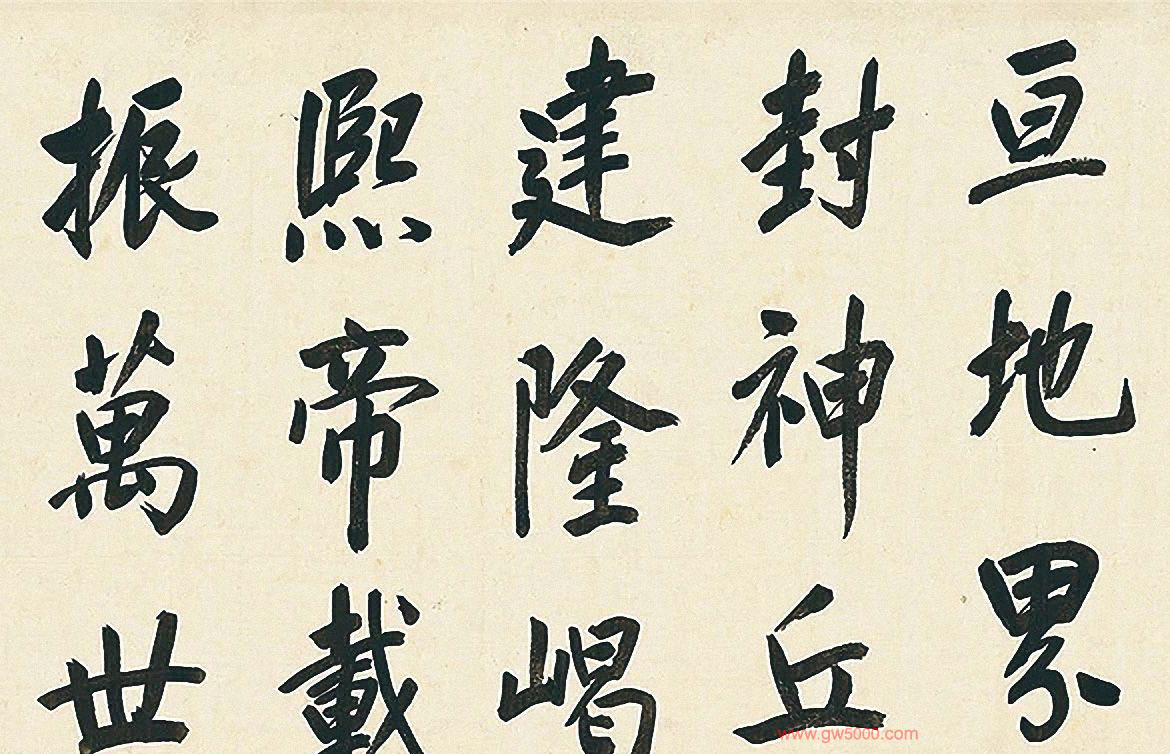 亘地界
封神丘
建隆嵑
熙帝載
振萬世
www.gw5000.com